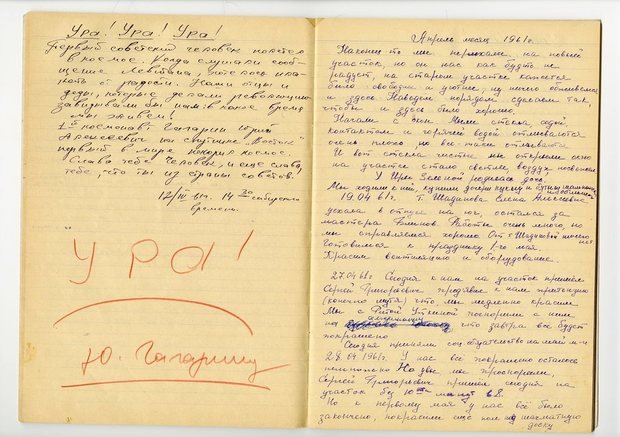 Ура! Ура! Ура!
Первый советский человек полетел
в космос. Когда слушали сооб-
щение Левитана, хотелось пла-
кать от радости. Наши отцы и
деды, которые делали революцию
завидывали бы нам: в какое время
мы живём!
1й космонавт Гагарин Юрий
Алексеевич на спутнике "Восток"
первый в мире покорил космос.
Слава тебе Человек, и еще слава
тебе, что ты из страны советов!
12/IV-61г. 14 30 сибирского
времени.
УРА!
Ю. Гагарину
Апрель месяц 1961г.
Наконец то мы переехали на новый
участок, но он нас как будто не
радует, на старом участке кажется
было свободнее и уютнее, ну ничего обживемся
и здесь. Наведем порядок, сделаем так,
чтобы и здесь было хорошо.
Начали с окон. Мыли стекла содой,
контактом и горячей водой отмываются
очень плохо, но все-таки отмываются.
И вот стекла чистые, мы открыли окно
на участке стало светлее, воздух
У Иры Зеленой родилась дочь.
Мы ходили к ней, купили дочери куклу и
19.04.61г. Т. Шадинова Елена Алексеевна
уехала в отпуск на юг, остался за
мастера Блинов. Работы очень много, но
мы справляемся хорошо.
Готовимся к празднику 1-го мая.
Красим вентиляцию и оборудование.
27.04.61г. Сегодня к нам на участок пришел
Сергей Григорьевич предъявил к нам претензии
(конечно шутя) что, мы медленно красим.
Мы с Ритой Уткиной поспорили с ним
на шоколадку что завтра все будет
покрашено
Сегодня приняли соц. обязательство на май м-ц
28.04.1961г. У нас всё покрашено осталось
немножко. Но увы мы проспорили,
Сергей Григорьевич пришел сегодня на
участок без 10ти минут в 8.
Но к первому мая у нас всё было
закончено, покрасили еще пол под шахматную
доску